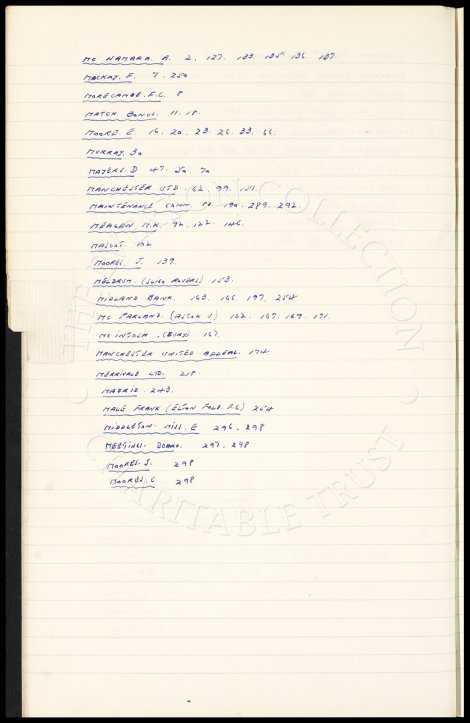 MC NAMARA A. 2. 127. 133. 135. 136. 137.
MACKAY. F. 7. 250
MORECAMBE. F.C. 8
MATCH BONUS. 11. 18.
MOORE. E. 16. 20. 23. 26. 33. 66.
MURRAY. 30
MAYERS. D 47. 50 70
MANCHESTER UTD. 62. 99. 151.
MAINTENANCE COMM. 190. 289. 292.
MEAGAN. M.K. 92. 122. 146.
MASCOT. 102
MOORES. J. 139.
MELDRUM. (SLIGO ROVERS) 153.
MIDLAND BANK. 163. 166. 197. 254
MC PARLAND. (ASTON V) 162. 167. 169. 171.
MC INTOSH. (BURY) 167.
MANCHESTER UNITED APPEAL. 174
MERRIVALE LTD. 218.
MADRID. 243.
MALE FRANK (ELTON FOLD. F.C) 254
MIDDLETON. MISS. E 296. 298
MEETINGS. BOARD. 297. 298
MOORES. J. 298
MOORES. C 298
THE COLLECTION
CHARITABLE TRUST